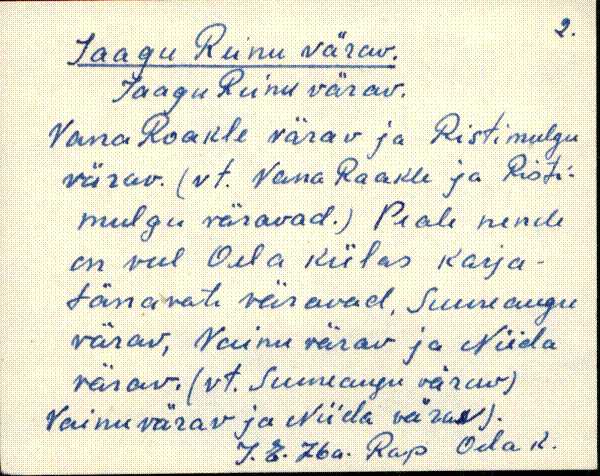 2.
Jaagu Reinu värav.
Jaagu Reinu värav.
Vana Roakle värav ja Ristimulgu
värav. (vt. Vana Raakle ja Risti-
mulgu väravad.) Peale nende
on veel Oela külas karja-
tänavate väravad, Suureaugu
värav, Vainu värav ja Niida
värav. (vt. Suureaugu värav)
Vainuvärav ja Niida värav).
Rap Oela k.